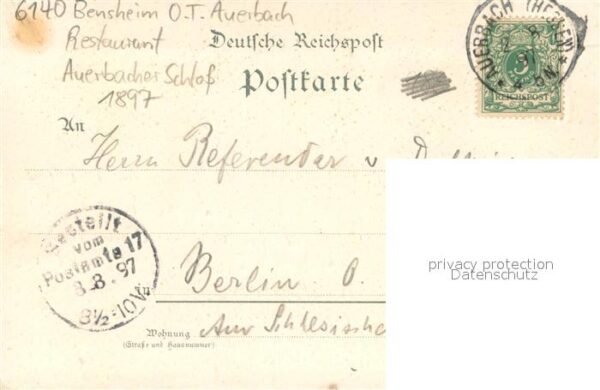 6140 Bensheim O.T. Auerbach
Restaurant
Auerbacher Schloß
1897
Deutsche Reichspost
Postkarte
AUERBACH (HESSEN)
5
REICHSPOST
An
Herrn Referendar v
Bestellt
vom
Postamte 17
8.8.97
8½-10V
In
Berlin O.
Am Schlesische
Wohnung
(Straße und Hausnummer)
privacy protection
Datenschutz